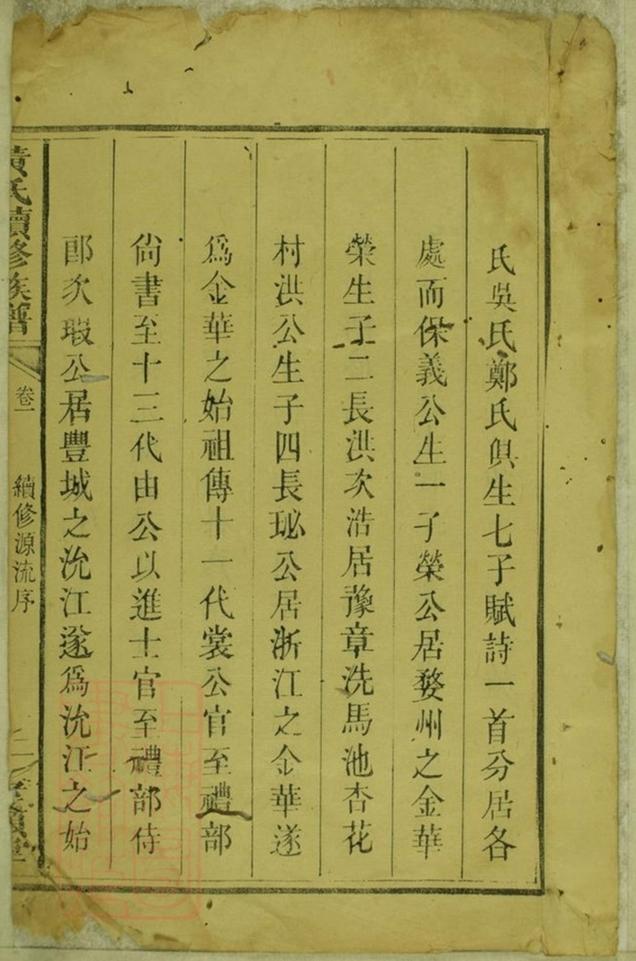 氏吳氏鄭氏俱生七子賦詩一首分居各
處而保義公生一子榮公居婺州之金華
榮生子二長洪次浩居豫章洗馬池杏花
村洪公生子四長珌公居浙江之金華遂
爲金華之始祖傳十一代裳公官至禮部
尙書至十三代由公以進士官至禮部侍
郎次瑕公居豐城之沇江遂爲沇江之始
黃氏續修族譜
卷一
續修源流序